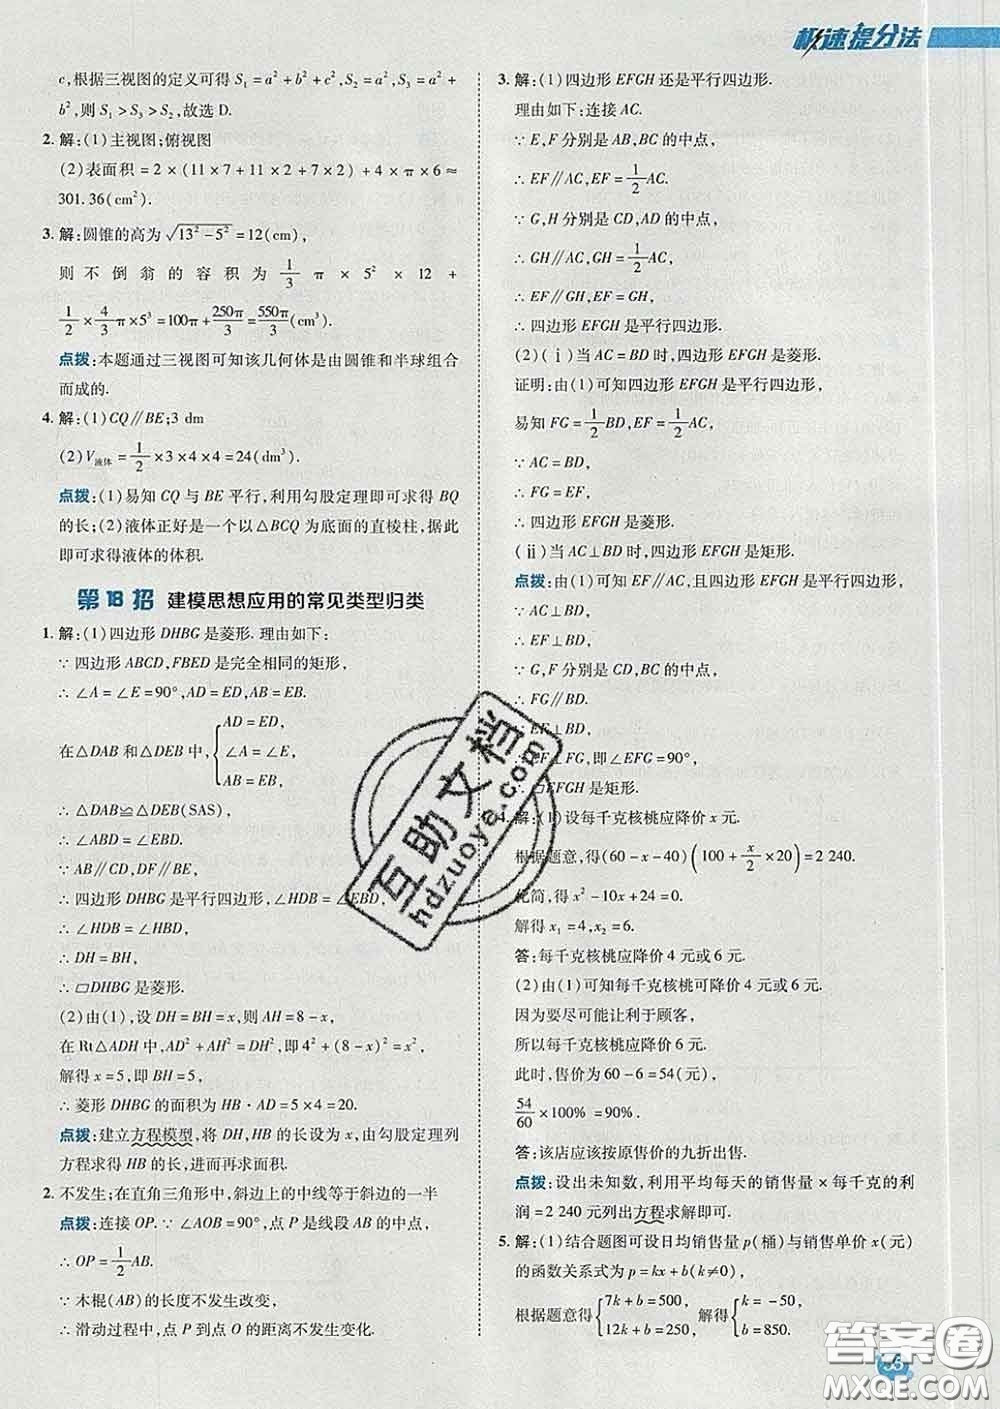 极速提分法
c,根据三视图的定义可得 S₁ = a² + b² + c²,S₂ = c²,S₃ = a² +
b²,则 S₁ > S₃ > S₂,故选 D.
2. 解:(1)主视图;俯视图
(2)表面积 = 2 × (11 × 7 + 11 × 2 + 7 × 2) + 4 × π × 6 ≈
301.36(cm²).
3. 解:圆锥的高为 √(13² − 5²) = 12(cm),
则不倒翁的容积为 1/3 π × 5² × 12 +
1/2 × 4/3 π × 5³ = 100π + 250π/3 = 550π/3 (cm³).
点拨:本题通过三视图可知该几何体是由圆锥和半球组合
而成的.
4. 解:(1)CQ∥BE;3 dm
(2)V液体 = 1/2 × 3 × 4 × 4 = 24(dm³).
点拨:(1)易知 CQ 与 BE 平行,利用勾股定理即可求得 BQ
的长;(2)液体正好是一个以△BCQ 为底面的直棱柱,据此
即可求得液体的体积.
第18招 建模思想应用的常见类型归类
1. 解:(1)四边形 DHBG 是菱形. 理由如下:
∵ 四边形 ABCD,FBED 是完全相同的矩形,
∴ ∠A = ∠E = 90°,AD = ED,AB = EB.
在△DAB 和△DEB 中, { AD = ED,
∠A = ∠E,
AB = EB,
∴ △DAB≌△DEB(SAS).
∴ ∠ABD = ∠EBD.
∵ AB∥CD,DF∥BE,
∴ 四边形 DHBG 是平行四边形,∠HDB = ∠EBD,
∴ ∠HDB = ∠HBD,
∴ DH = BH,
∴ ▱DHBG 是菱形.
(2)由(1),设 DH = BH = x,则 AH = 8 − x,
在 Rt△ADH 中,AD² + AH² = DH²,即 4² + (8 − x)² = x²,
解得 x = 5,即 BH = 5,
∴ 菱形 DHBG 的面积为 HB · AD = 5 × 4 = 20.
点拨:建立方程模型,将 DH,HB 的长设为 x,由勾股定理列
方程求得 HB 的长,进而再求面积.
2. 不发生;在直角三角形中,斜边上的中线等于斜边的一半
点拨:连接 OP. ∵ ∠AOB = 90°,点 P 是线段 AB 的中点,
∴ OP = 1/2 AB.
∵ 木棍(AB)的长度不发生改变,
∴ 滑动过程中,点 P 到点 O 的距离不发生变化.
3. 解:(1)四边形 EFGH 还是平行四边形.
理由如下:连接 AC.
∵ E,F 分别是 AB,BC 的中点,
∴ EF∥AC,EF = 1/2 AC.
∵ G,H 分别是 CD,AD 的中点,
∴ GH∥AC,GH = 1/2 AC,
∴ EF∥GH,EF = GH,
∴ 四边形 EFGH 是平行四边形.
(2)(ⅰ)当 AC = BD 时,四边形 EFGH 是菱形.
证明:由(1)可知四边形 EFGH 是平行四边形,
易知 FG = 1/2 BD,EF = 1/2 AC,
∵ AC = BD,
∴ FG = EF,
∴ 四边形 EFGH 是菱形.
(ⅱ)当 AC⊥BD 时,四边形 EFGH 是矩形.
点拨:由(1)可知 EF∥AC,且四边形 EFGH 是平行四边形,
∵ AC⊥BD,
∴ EF⊥BD.
∵ G,F 分别是 CD,BC 的中点,
∴ FG∥BD.
∴ EF⊥FG,即∠EFG = 90°,
∴ ▱EFGH 是矩形.
4. 解:(1)设每千克核桃应降价 x 元.
根据题意,得(60 − x − 40)(100 + x/2 × 20) = 2 240.
化简,得 x² − 10x + 24 = 0.
解得 x₁ = 4,x₂ = 6.
答:每千克核桃应降价 4 元或 6 元.
(2)由(1)可知每千克核桃可降价 4 元或 6 元.
因为要尽可能让利于顾客,
所以每千克核桃应降价 6 元.
此时,售价为 60 − 6 = 54(元),
54/60 × 100% = 90%.
答:该店应该按原售价的九折出售.
点拨:设出未知数,利用平均每天的销售量 × 每千克的利
润 = 2 240 元列出方程求解即可.
5. 解:(1)结合题图可设日均销售量 p(桶)与销售单价 x(元)
的函数关系式为 p = kx + b(k≠0),
根据题意得 { 7k + b = 500, 解得 { k = −50,
12k + b = 250, b = 850.
互助文档
hdzuoye.com
答案圈
MXQE.COM
53